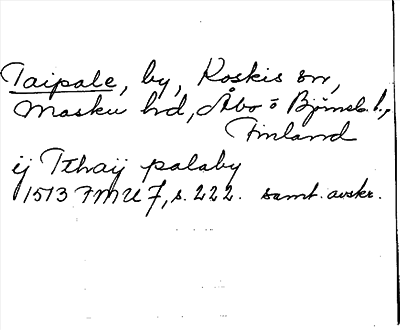 Taipale, by, Koskis sn,
Masku hd, Åbo o Björneb. l.,
Finland
ij Tthaij palaby
1513 FMU 7, s. 222. samt. avskr.